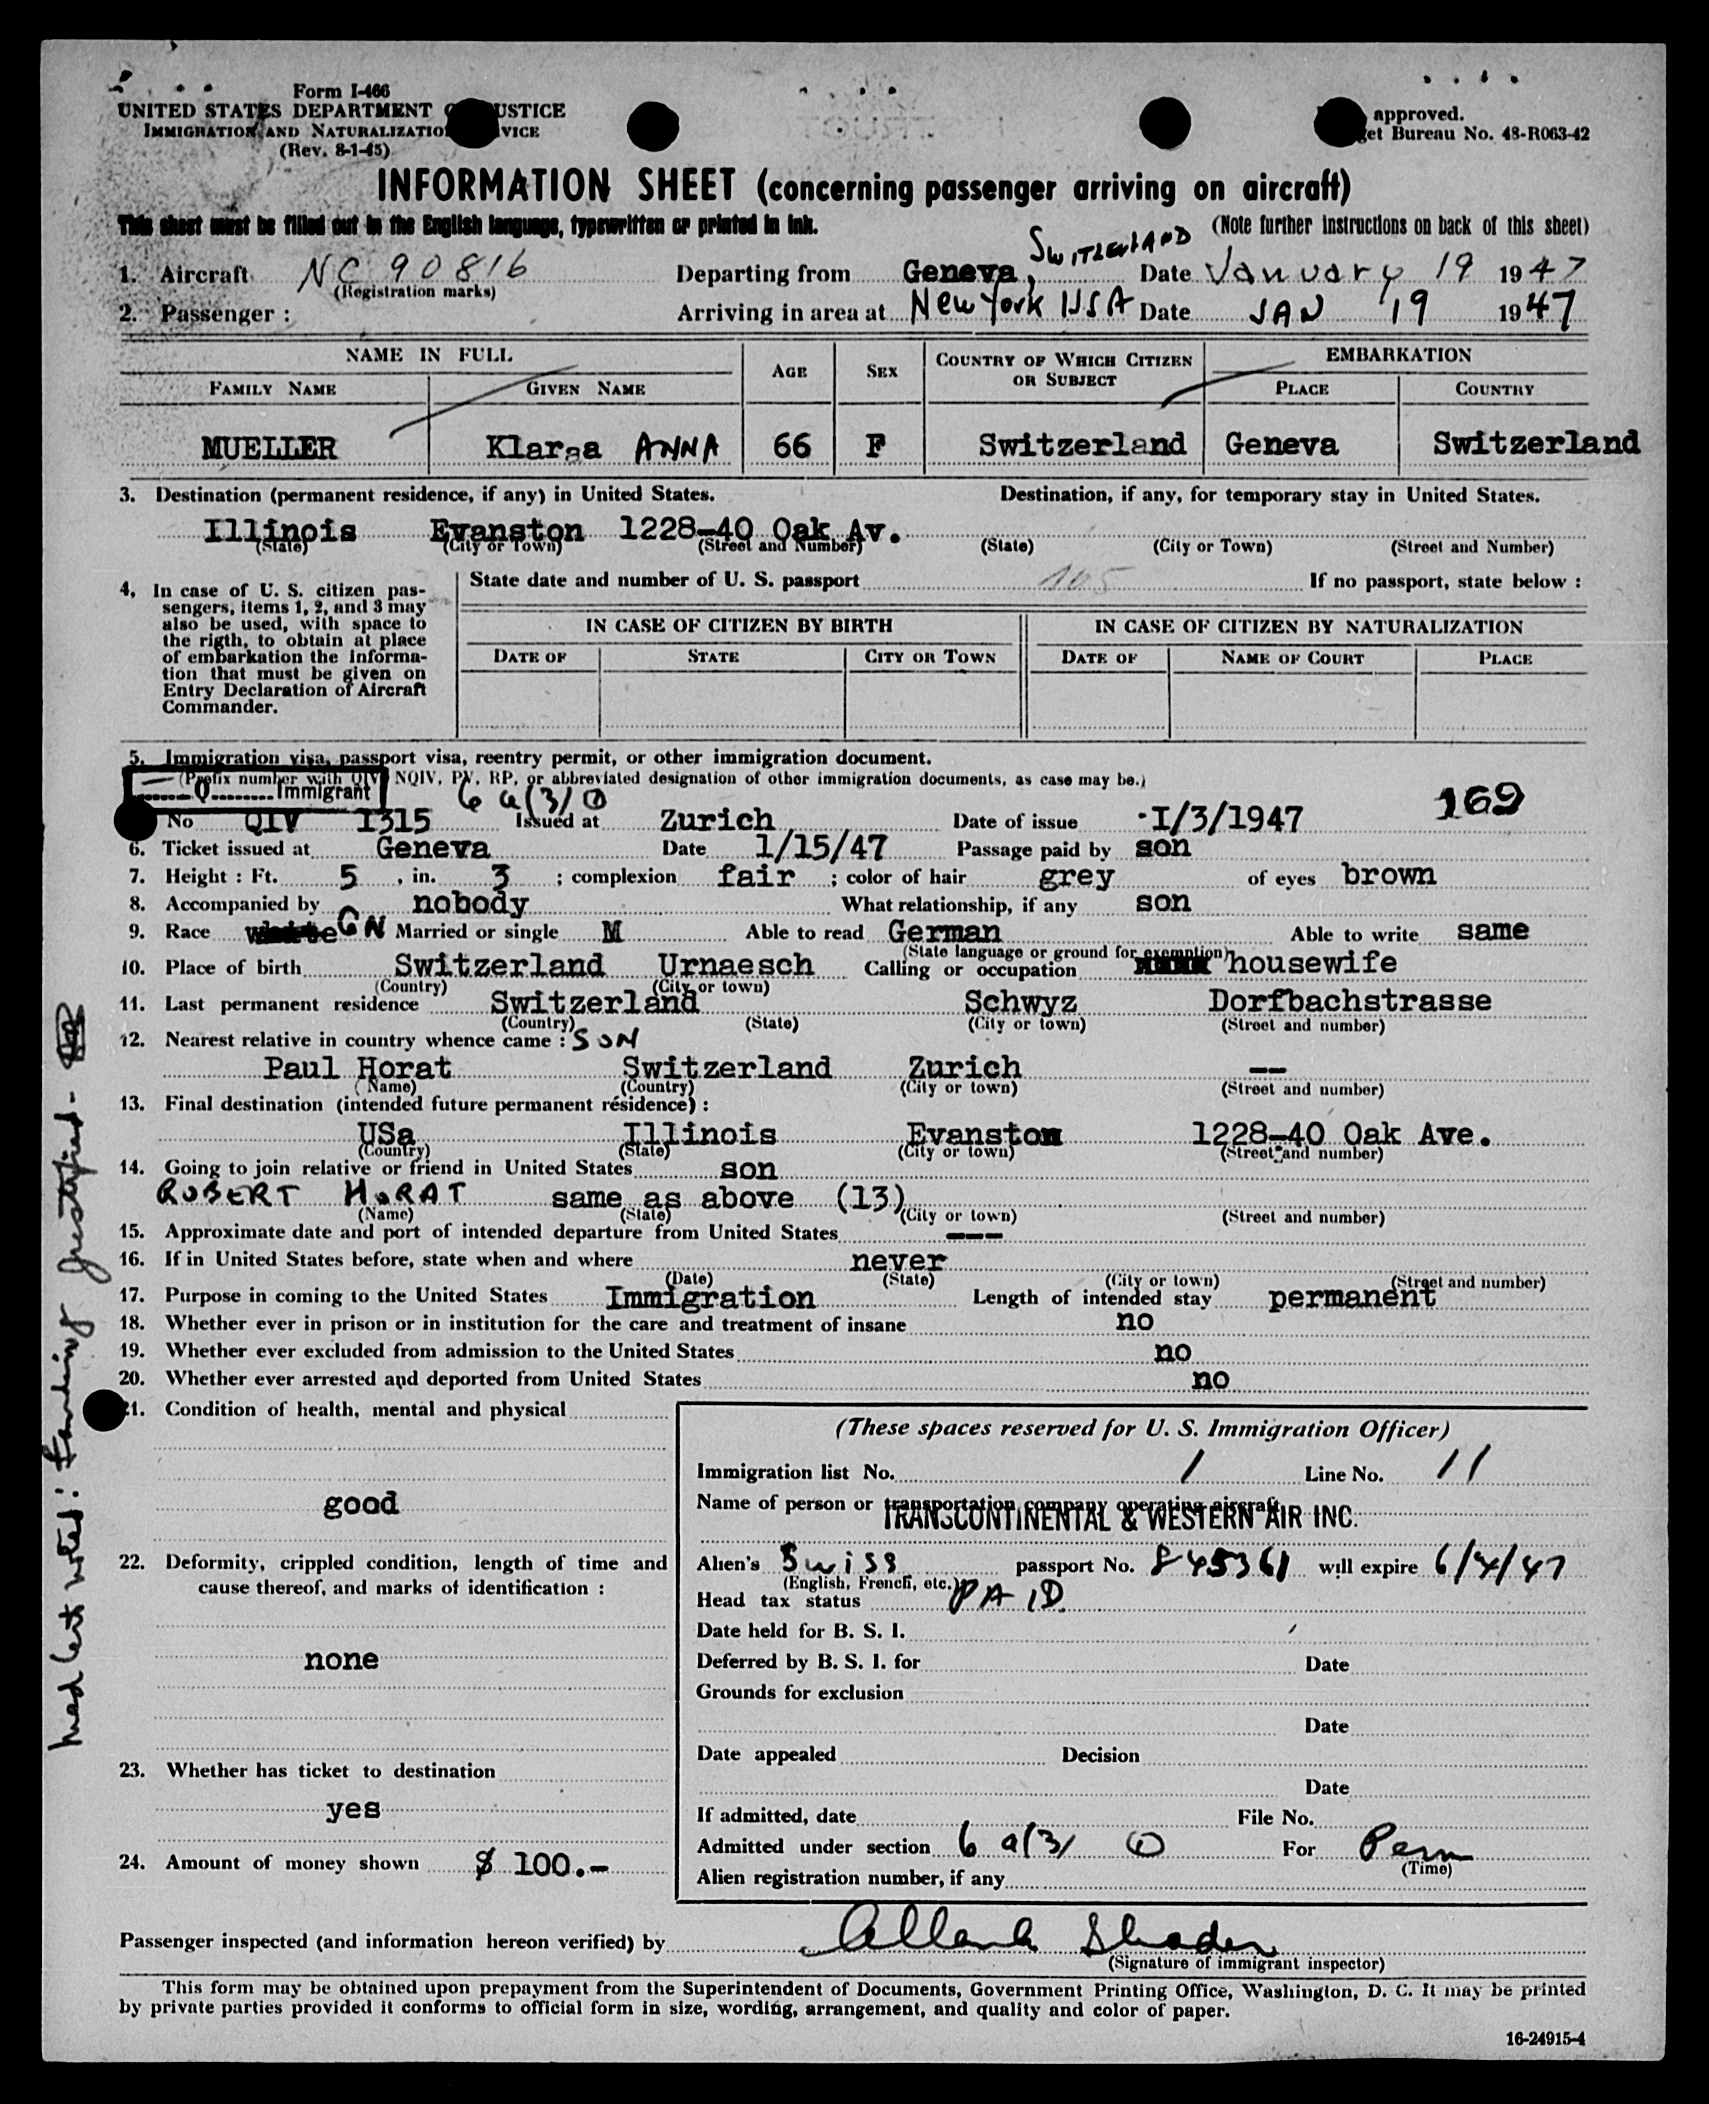 Form I-466
UNITED STATES DEPARTMENT OF JUSTICE
IMMIGRATION AND NATURALIZATION SERVICE
(Rev. 8-1-45)
approved.
Bureau No. 43-R063-42
INFORMATION SHEET (concerning passenger arriving on aircraft)
This sheet must be filled out in the English language, typewritten or printed in ink.
(Note further instructions on back of this sheet)
1. Aircraft NC 90816 Departing from Geneva, SWITZERLAND Date January 19 1947
(Registration marks)
2. Passenger : Arriving in area at New York USA Date JAN 19 1947
NAME IN FULL AGE SEX COUNTRY OF WHICH CITIZEN OR SUBJECT EMBARKATION
FAMILY NAME GIVEN NAME PLACE COUNTRY
MUELLER Klara ANNA 66 F Switzerland Geneva Switzerland
3. Destination (permanent residence, if any) in United States. Destination, if any, for temporary stay in United States.
Illinois Evanston 1228-40 Oak Av.
(State) (City or Town) (Street and Number) (State) (City or Town) (Street and Number)
4, In case of U. S. citizen pas-
sengers, items 1, 2, and 3 may
also be used, with space to
the rigth, to obtain at place
of embarkation the informa-
tion that must be given on
Entry Declaration of Aircraft
Commander.
State date and number of U. S. passport 105 If no passport, state below :
IN CASE OF CITIZEN BY BIRTH IN CASE OF CITIZEN BY NATURALIZATION
DATE OF STATE CITY OR TOWN DATE OF NAME OF COURT PLACE
5. Immigration visa, passport visa, reentry permit, or other immigration document.
(Prefix number with QIV, NQIV, PV, RP, or abbreviated designation of other immigration documents, as case may be.)
Q Immigrant 6 a(3) 0 169
No QIV 1315 Issued at Zurich Date of issue I/3/1947
6. Ticket issued at Geneva Date 1/15/47 Passage paid by son
7. Height : Ft. 5 , in. 3 ; complexion fair ; color of hair grey of eyes brown
8. Accompanied by nobody What relationship, if any son
9. Race GN Married or single M Able to read German Able to write same
(State language or ground for exemption)
10. Place of birth Switzerland Urnaesch Calling or occupation housewife
(Country) (City or town)
11. Last permanent residence Switzerland Schwyz Dorfbachstrasse
(Country) (State) (City or town) (Street and number)
12. Nearest relative in country whence came : SON
Paul Horat Switzerland Zurich --
(Name) (Country) (City or town) (Street and number)
13. Final destination (intended future permanent résidence) :
USa Illinois Evanston 1228-40 Oak Ave.
(Country) (State) (City or town) (Street and number)
14. Going to join relative or friend in United States son
ROBERT HORAT same as above (13)
(Name) (State) (City or town) (Street and number)
15. Approximate date and port of intended departure from United States ---
16. If in United States before, state when and where never
(Date) (State) (City or town) (Street and number)
17. Purpose in coming to the United States Immigration Length of intended stay permanent
18. Whether ever in prison or in institution for the care and treatment of insane no
19. Whether ever excluded from admission to the United States no
20. Whether ever arrested and deported from United States no
21. Condition of health, mental and physical
good
22. Deformity, crippled condition, length of time and
cause thereof, and marks of identification :
none
23. Whether has ticket to destination
yes
24. Amount of money shown $ 100.-
(These spaces reserved for U. S. Immigration Officer)
Immigration list No. 1 Line No. 11
Name of person or transportation company operating aircraft
TRANSCONTINENTAL & WESTERN AIR INC.
Alien's Swiss passport No. 845361 will expire 6/4/47
(English, French, etc.)
Head tax status PAID
Date held for B. S. I.
Deferred by B. S. I. for Date
Grounds for exclusion
Date
Date appealed Decision
Date
If admitted, date File No.
Admitted under section 6 a(3) 0 For Perm
(Time)
Alien registration number, if any
Passenger inspected (and information hereon verified) by
(Signature of immigrant inspector)
This form may be obtained upon prepayment from the Superintendent of Documents, Government Printing Office, Washington, D. C. It may be printed
by private parties provided it conforms to official form in size, wording, arrangement, and quality and color of paper.
16-24915-4
Med Cert noted: Landing justified -